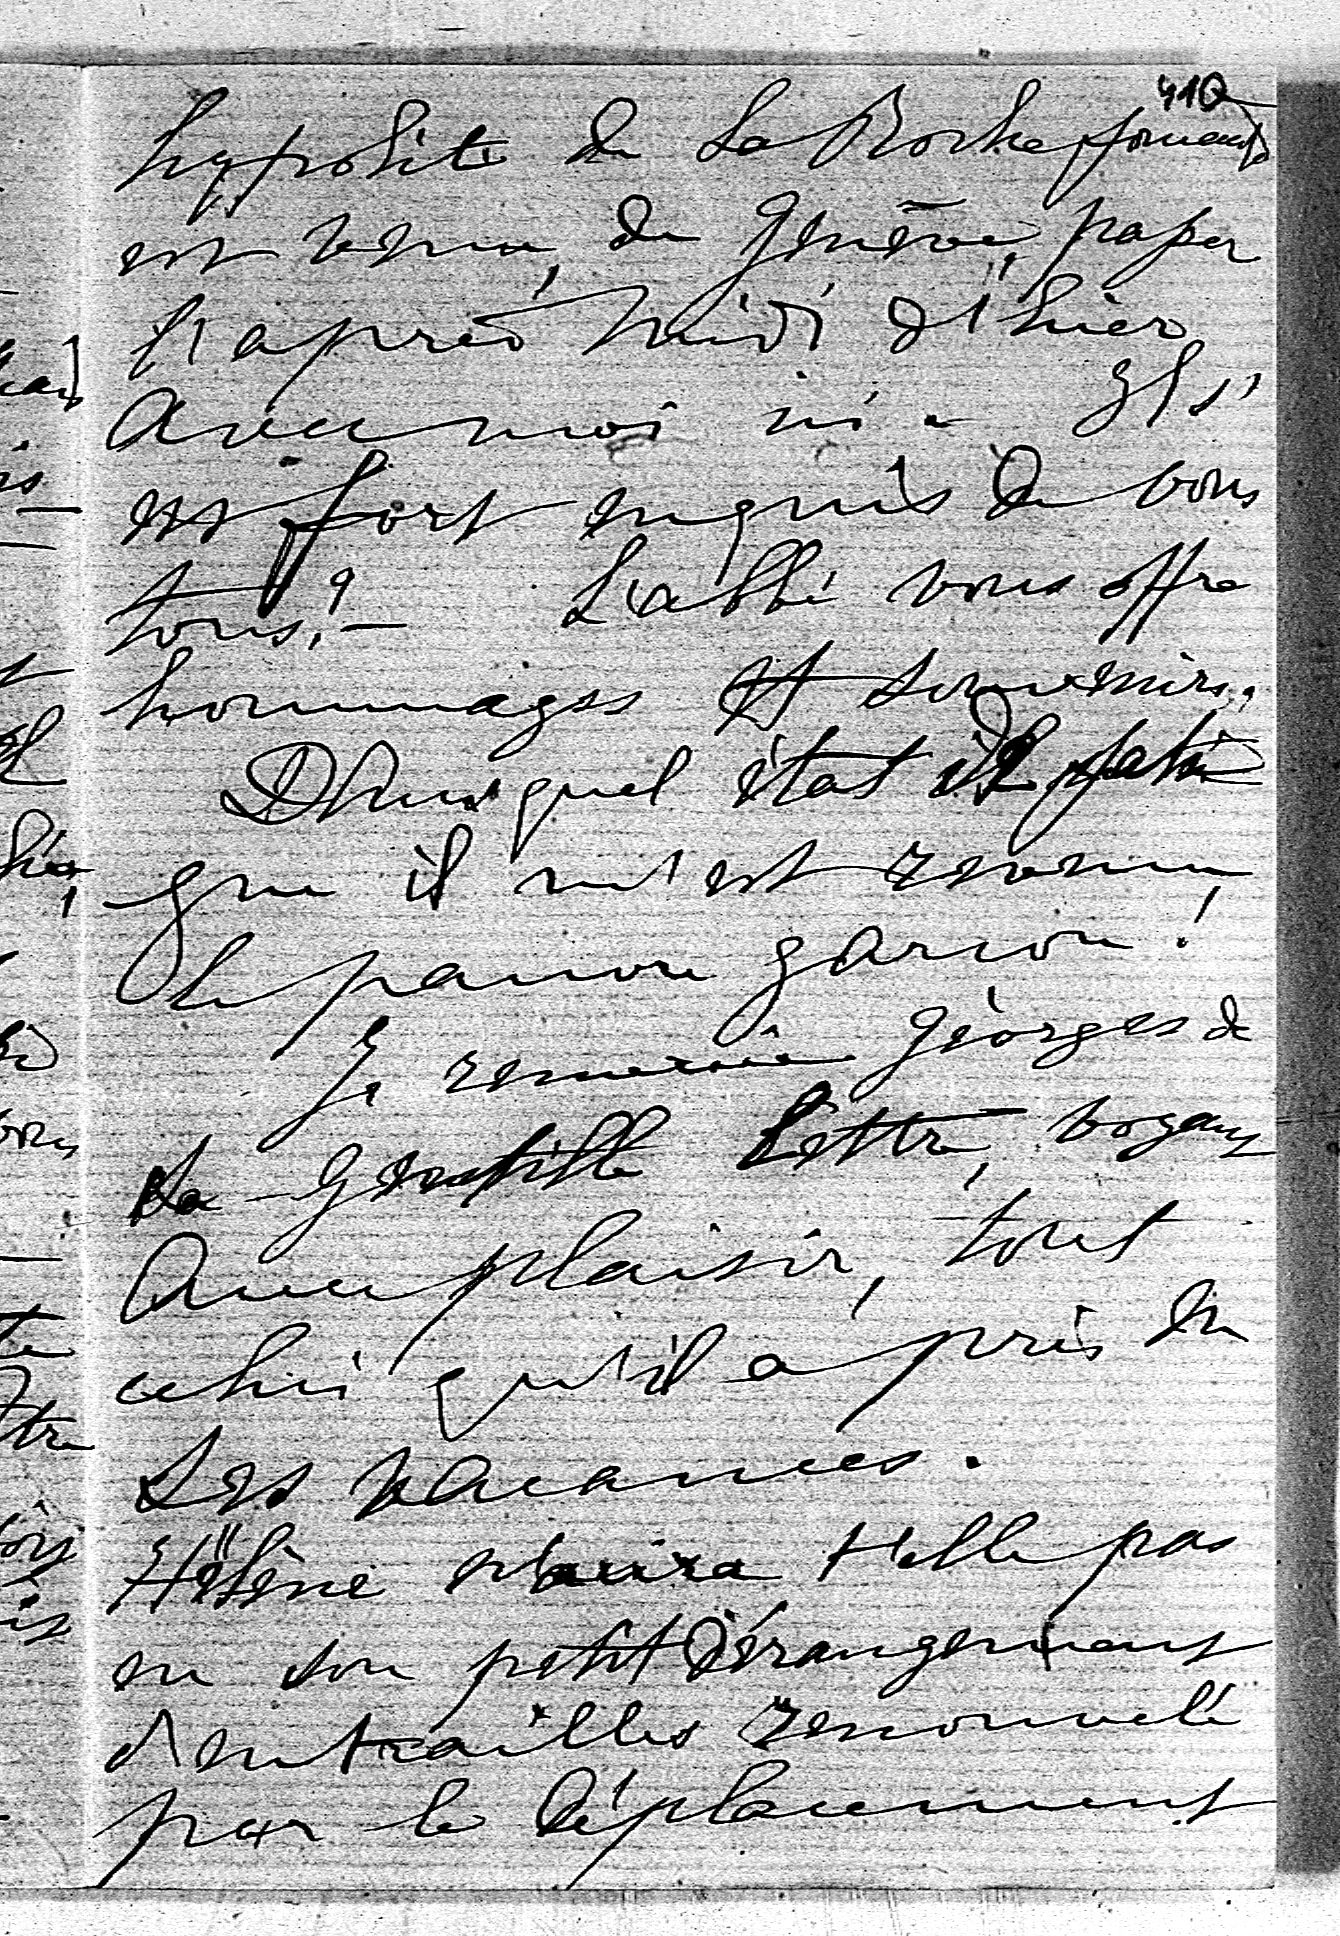 410
hyppolite de La Rochefoucauld
est venu, de Genève, passer
l'après midi d'hier
avec moi ici. Il s'
est fort enquis de vous
tous. — L'abbé vous offre
hommages et souvenirs.
Dans quel état de
que il m'est revenu
le pauvre garçon !
Je remercie Georges de
sa gentille lettre, voyant
avec plaisir, tout
celui qu'il a pris en
ses vacances.
Hélène n'aura t'elle pas
eu son petit dérangement
d'entrailles renouvelé
par le déplacement